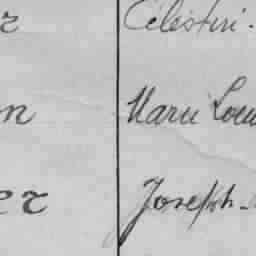 r Célestin.
n Marie Lou
er Joseph.